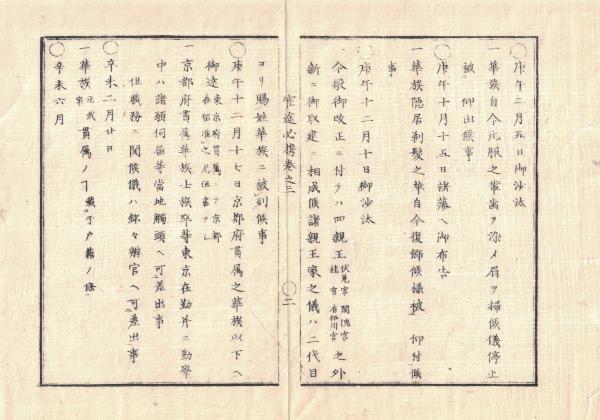 ○庚午二月五日御沙汰
一華族自今元服之輩歯ヲ染メ眉ヲ掃候儀停止
被 仰出候事
○庚午十月十五日諸藩ヘ御布告
一華族隠居剃髪之輩自今復飾候様被 仰付候
事
○庚午十二月十日御沙汰
今般御改正ニ付テハ四親王伏見宮 閑院宮 桂宮 有栖川宮之外
新ニ御取建ニ相成候諸親王家之儀ハ二代目
官途必携巻之三 ○二
ヨリ賜姓華族ニ被列候事
○庚午十二月十七日京都府貫属之華族以下ヘ
御達
一京都府貫属華族士族卒等東京在勤并ニ勤学
中ハ諸願伺届等当地觸頭ヘ可差出事
但職務ニ関候儀ハ銘々辨官ヘ可差出事
○辛未二月廿日
一華族元武家貫属ノ丁載テ戸籍ノ條
○辛未六月